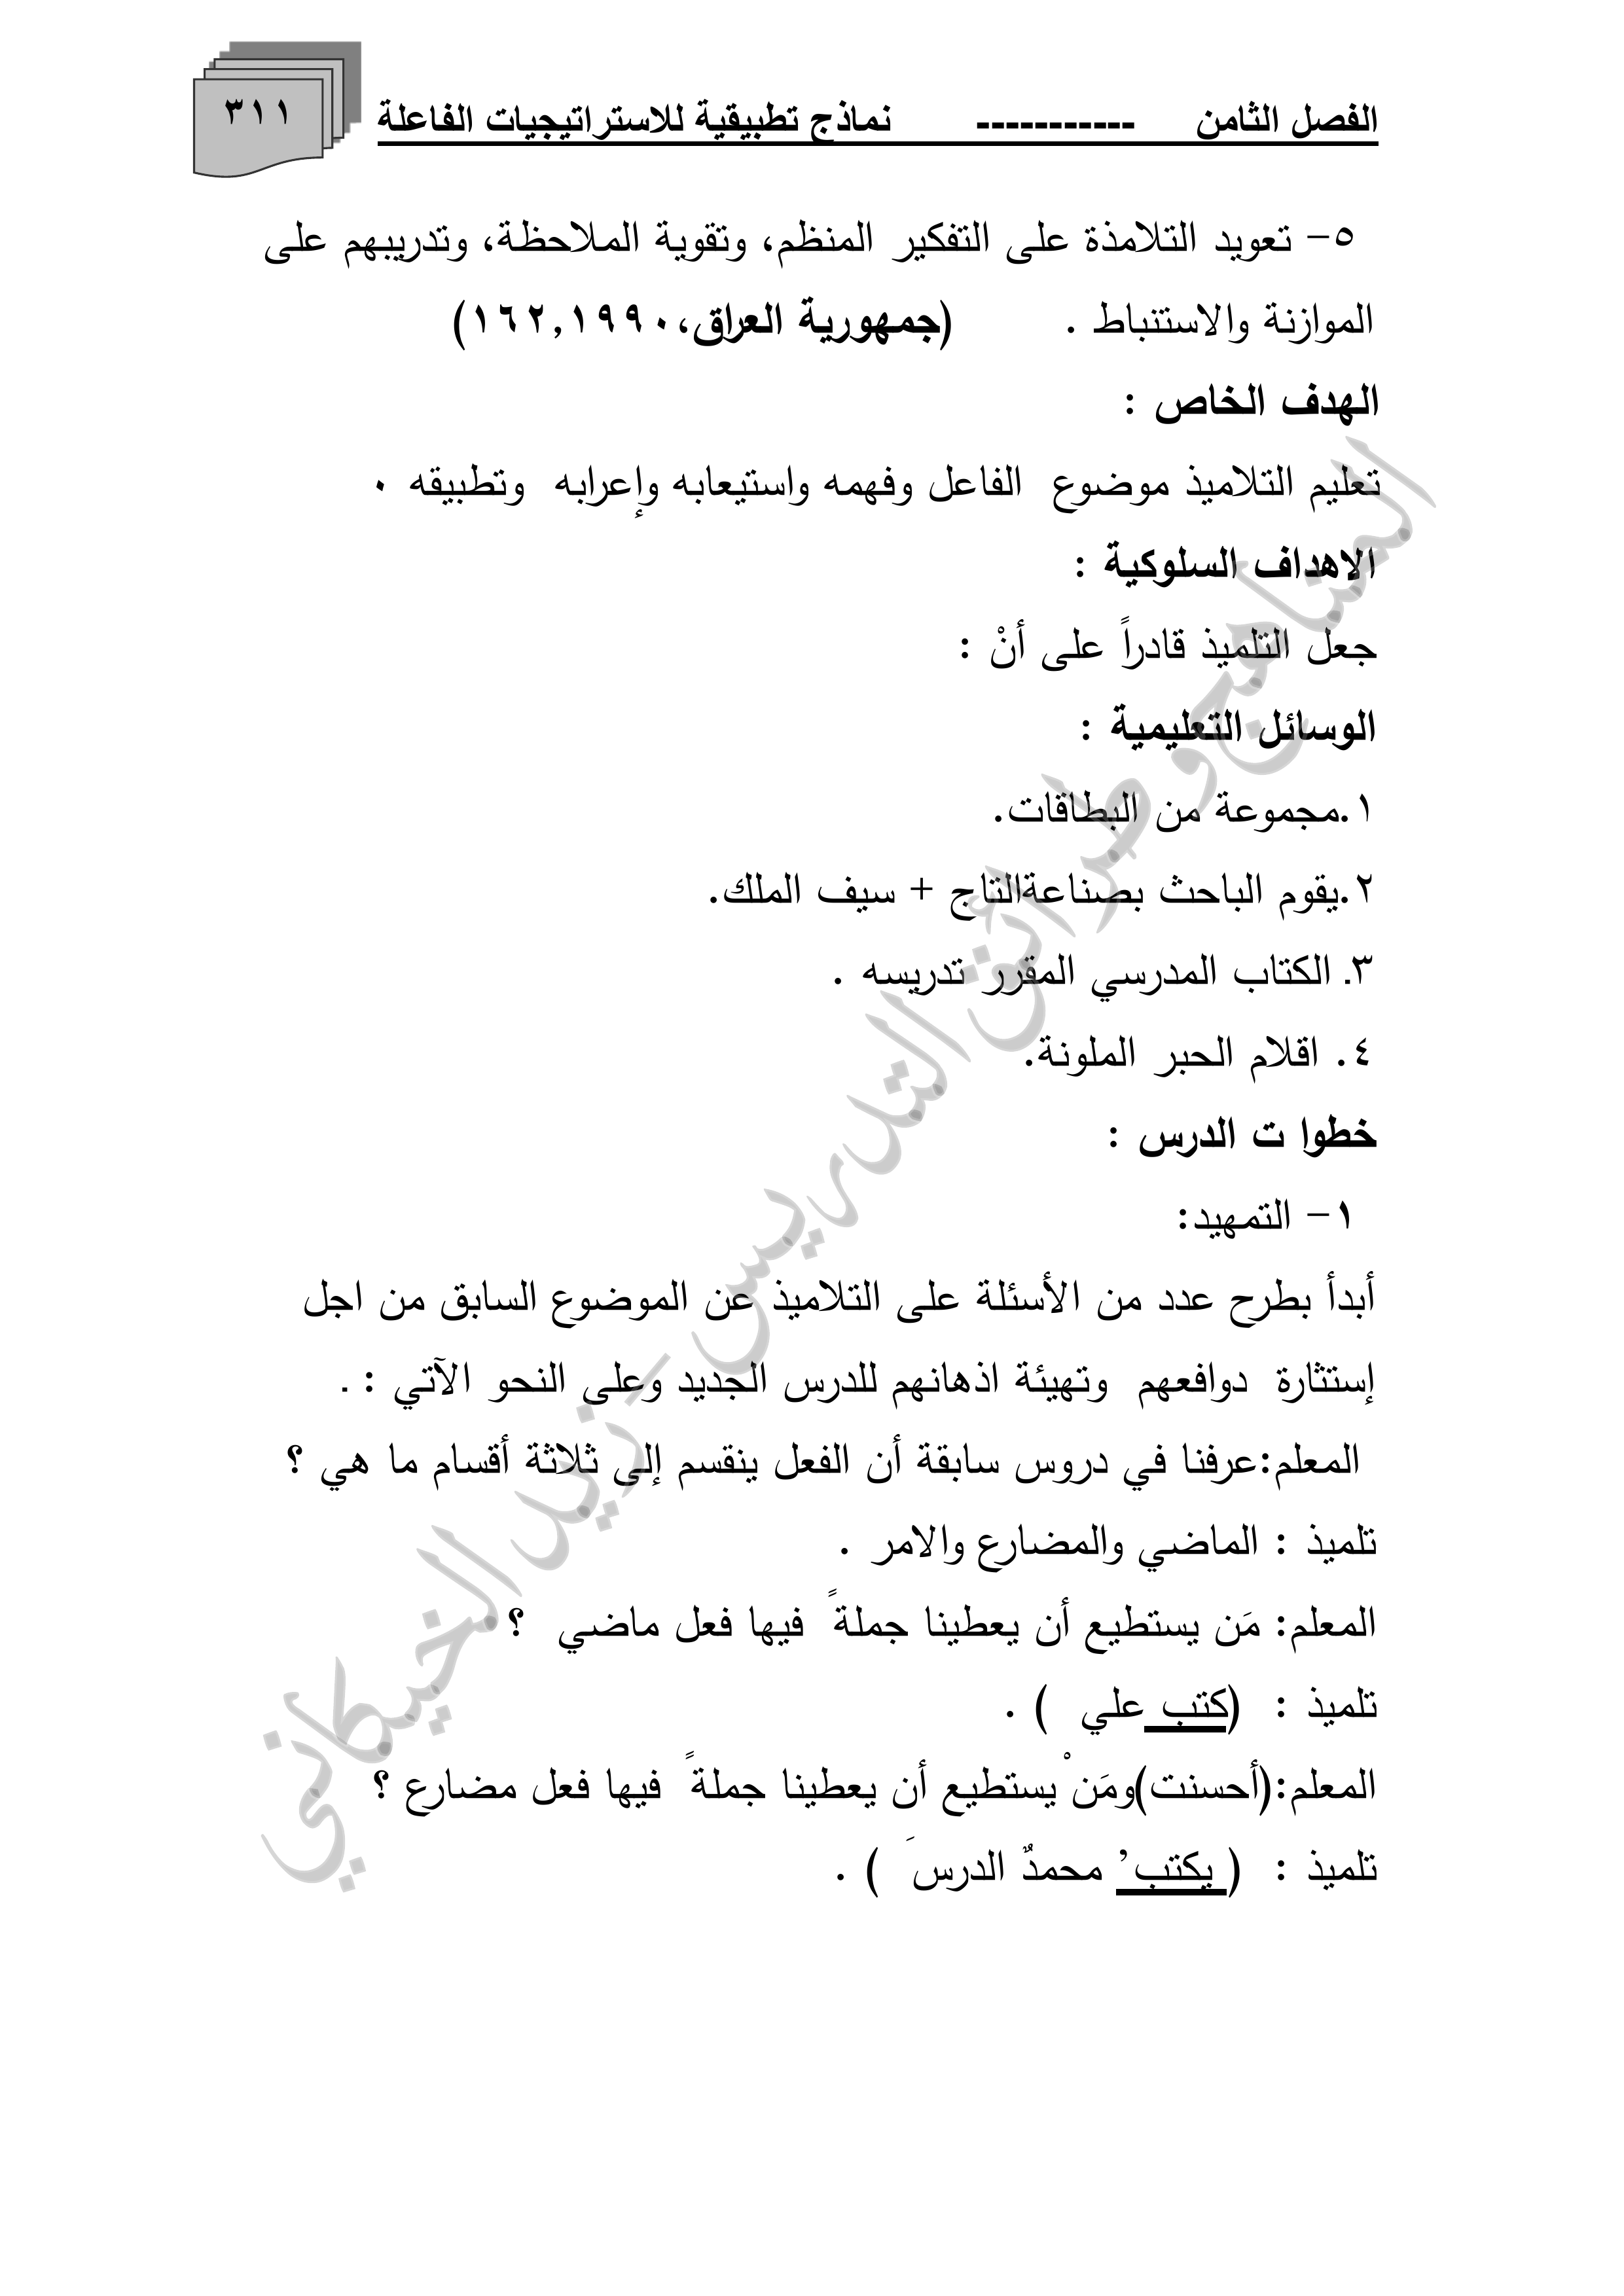 الفصل الثامن ----------- نماذج تطبيقية للاستراتيجيات الفاعلة
٣١١
٥- تعويد التلامذة على التفكير المنظم، وتقوية الملاحظة، وتدريبهم على
الموازنة والاستنباط . (جمهورية العراق،١٦٢,١٩٩٠)
الهدف الخاص :
تعليم التلاميذ موضوع الفاعل وفهمه واستيعابه وإعرابه وتطبيقه ٠
الاهداف السلوكية :
جعل التلميذ قادراً على أنْ :
الوسائل التعليمية :
١.مجموعة من البطاقات.
٢.يقوم الباحث بصناعةالتاج + سيف الملك.
٣. الكتاب المدرسي المقرر تدريسه .
٤. اقلام الحبر الملونة.
خطوا ت الدرس :
١- التمهيد:
أبدأ بطرح عدد من الأسئلة على التلاميذ عن الموضوع السابق من اجل
إستثارة دوافعهم وتهيئة اذهانهم للدرس الجديد وعلى النحو الآتي : .
المعلم:عرفنا في دروس سابقة أن الفعل ينقسم إلى ثلاثة أقسام ما هي ؟
تلميذ : الماضي والمضارع والامر .
المعلم: مَن يستطيع أن يعطينا جملةً فيها فعل ماضي ؟
تلميذ : (كتب علي ) .
المعلم:(أحسنت)ومَنْ يستطيع أن يعطينا جملةً فيها فعل مضارع ؟
تلميذ : ( يكتب’ محمدٌ الدرسَ ) .
المناهج وطرائق التدريس - زيد الخيكاني